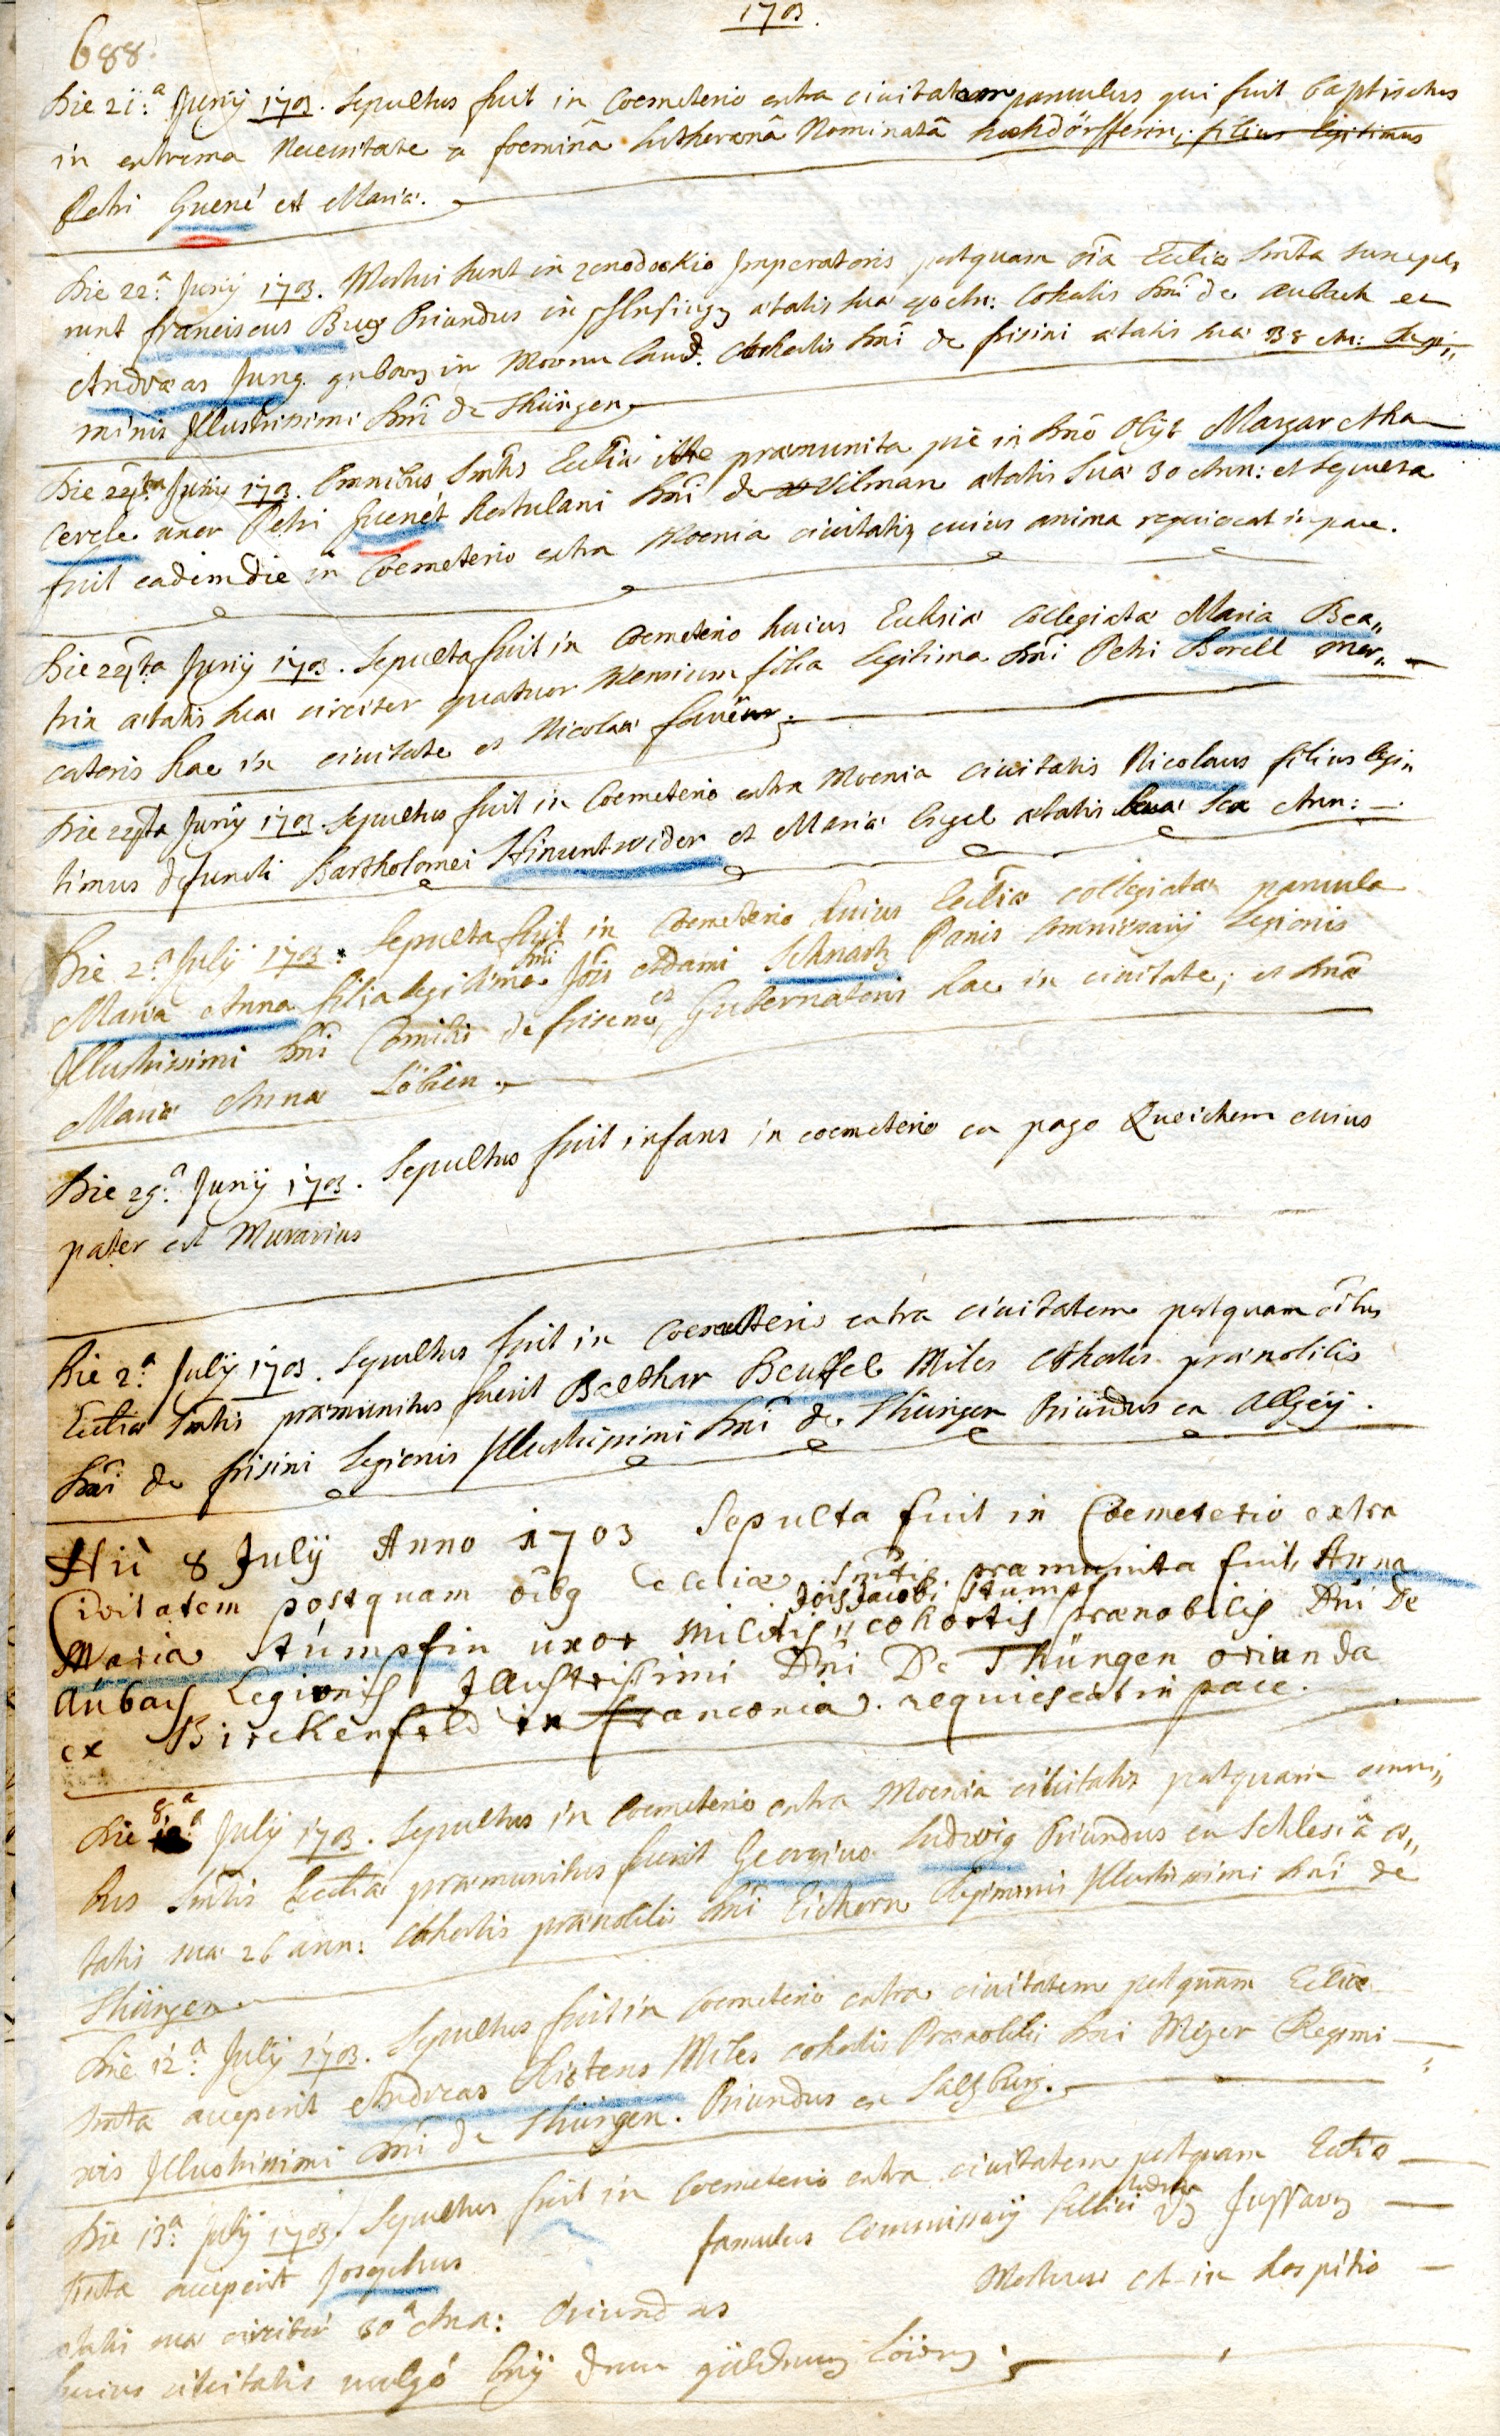 1703.
688.
Die 21.a Junÿ 1703. Sepultus fuit in Coemeterio extra civitatem parvulus qui fuit baptisatus
in extrema Necessitate a foemina Lutherana Nominata filius legitimus
Petri Guené et Maria.
Die 22.a Junÿ 1703. Mortui sunt in xenodochio Imperatoris postquam oia Ecclia Smta suscepe,
runt franciscus Oriundus in ætatis sua 40 An: Cohortis Dni de Aubach et
Andreas Jung in Cohortis Dni de frisini ætatis sua 38 An: Regi,,
minis Illustrissimi Dni de Thüngen
Die Junÿ 1703. Omnibus Smtis Eccliæ præmunita pie in Dno Obÿt Margaretha
Cercle uxor Petri Guenét Dni de Vilman ætatis sua 30 Ann: et Sepulta
fuit eadem die in Coemeterio extra Moenia civitatis cuius anima requiescat in pace.
Die Junÿ 1703. Sepulta fuit in Coemeterio huius Ecclesiæ Collegiatæ Maria Bea,,
trix ætatis sua circiter quatuor Mensium filia Legitima Dni Petri Borell Mer,,
catoris hac in civitate et Nicolaa
Die Junÿ 1703. Sepultus fuit in Coemeterio extra Moenia Civitatis Nicolaus filius legi,,
timus defuncti Bartholomei Hinuntwider et Maria Engel ætatis sua sex Ann:
Die 2.a Julÿ 1703. Sepulta fuit in Coemeterio huius Eccliæ Collegiatæ parvula
Maria Anna filia legitima Dni Jois Adami Schwartz Panis Commissarÿ Legionis
Illustrissimi Dni Comitis de frisene et Gubernatoris hac in civitate; et Dnæ
Maria Anna Löbien.
Die 29.a Junÿ 1703. Sepultus fuit infans in coemeterio ex pago Queichem cuius
pater est Murarius
Die 2.a Julÿ 1703. Sepultus fuit in Coemeterio extra civitatem postquam oibus
Eccliæ Smtis præmunitus fuerit Balthar Beuffel Miles Cohortis prænobilis
Dni de frisini Legionis Illustrissimi Dni de Thüngen Oriundus ex Allgeÿ.
Die 8 Julÿ Anno 1703 Sepulta fuit in Coemeterio extra
Civitatem postquam oibg Eccliæ Smtis præmunita fuit, Anna
Maria Stúmpfin uxor militis Jois Jacobi Stumpf cohortis prænobilis Dni De
Aúbach Legionis Illustrissimi Dni De Thüngen orianda
ex Birckenfeld in franconia. requiescat in pace.
Die 8.a Julÿ 1703. Sepultus in Coemeterio extra Moenia civitatis postquam omni,,
bus Smtis Eccliæ præmunitus fuerit Georgius Ludwig Oriundus ex Schlesia æ,,
tatis sua 26 ann: Cohortis prænobilis Dni Eichorn Regiminis Illustrissimi Dni de
Thüngen.
Die 12.a Julÿ 1703. Sepultus fuit in Coemeterio extra civitatem postquam Eccliæ
Smta acceperit Andreas Kistens Miles cohortis Prænobilis Dni Meÿer Regimi
nis Illustrissimi Dni de Thüngen. Oriundus ex Saltzburg.
Die 13.a Julÿ 1703. Sepultus fuit in Coemeterio extra civitatem postquam Eccliæ
Smta acceperit Josephus famulus Commissarÿ
ætatis sua circiter 30.a Ann: Oriundus Mortuus est in hospitio
huius civitatis vulgó beÿ dem güldenen Löwen.